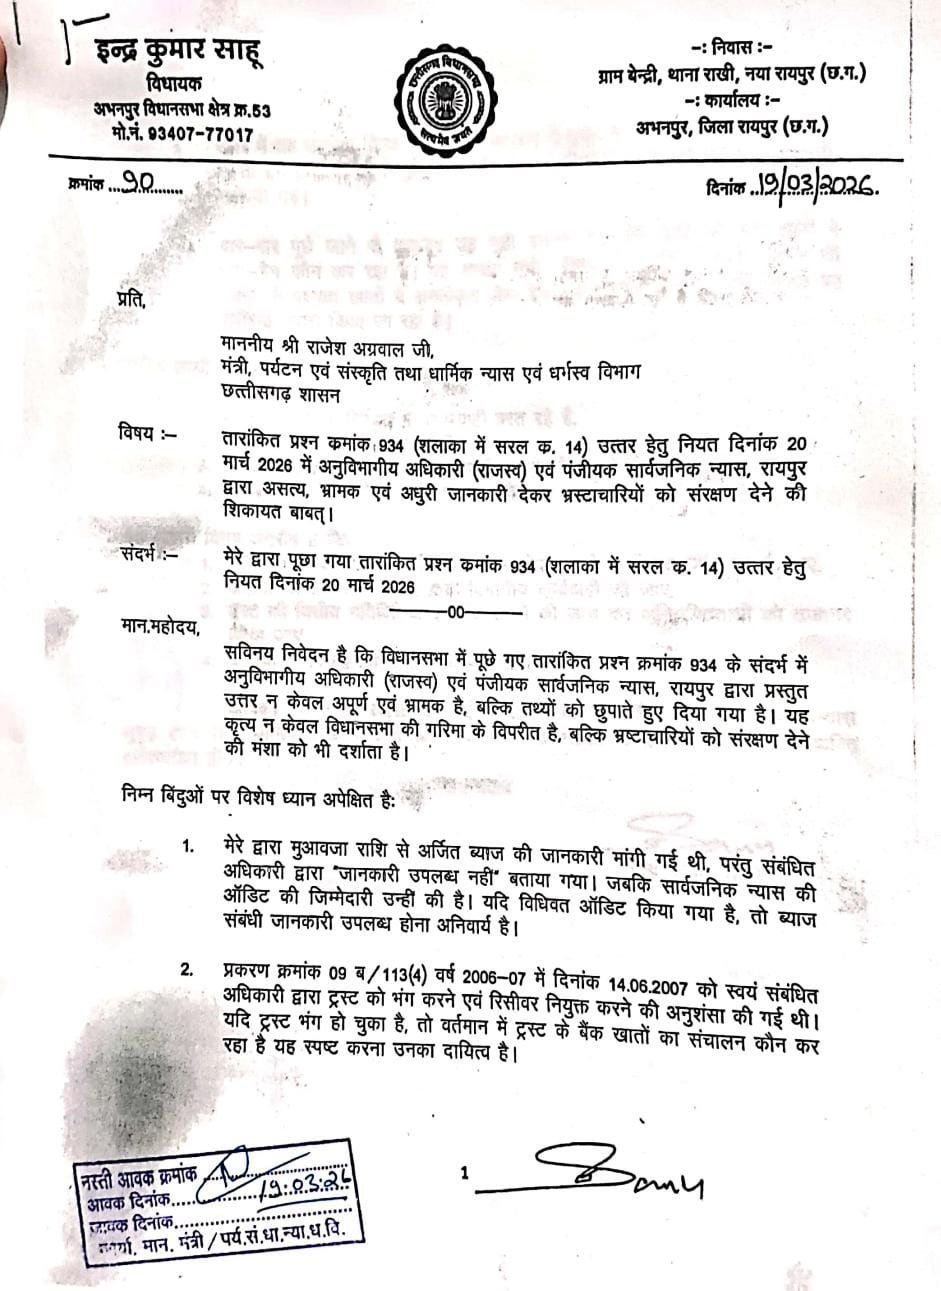 इन्द्र कुमार साहू
विधायक
अभनपुर विधानसभा क्षेत्र क्र.53
मो.नं. 93407-77017
छत्तीसगढ़ विधानसभा
सत्यमेव जयते
-: निवास :-
ग्राम बेन्द्री, थाना राखी, नया रायपुर (छ.ग.)
-: कार्यालय :-
अभनपुर, जिला रायपुर (छ.ग.)
क्रमांक ...90.........
दिनांक ..19/03/2026.
प्रति,
माननीय श्री राजेश अग्रवाल जी,
मंत्री, पर्यटन एवं संस्कृति तथा धार्मिक न्यास एवं धर्भस्व विभाग
छत्तीसगढ़ शासन
विषय :–
तारांकित प्रश्न कमांक 934 (शलाका में सरल क. 14) उत्तर हेतु नियत दिनांक 20
मार्च 2026 में अनुविभागीय अधिकारी (राजस्व) एवं पंजीयक सार्वजनिक न्यास, रायपुर
द्वारा असत्य, भ्रामक एवं अधुरी जानकारी देकर भ्रस्टाचारियों को संरक्षण देने की
शिकायत बाबत्।
संदर्भ :–
मेरे द्वारा पूछा गया तारांकित प्रश्न कमांक 934 (शलाका में सरल क. 14) उत्तर हेतु
नियत दिनांक 20 मार्च 2026
———00———
मान.महोदय,
सविनय निवेदन है कि विधानसभा में पूछे गए तारांकित प्रश्न क्रमांक 934 के संदर्भ में
अनुविभागीय अधिकारी (राजस्व) एवं पंजीयक सार्वजनिक न्यास, रायपुर द्वारा प्रस्तुत
उत्तर न केवल अपूर्ण एवं भ्रामक है, बल्कि तथ्यों को छुपाते हुए दिया गया है। यह
कृत्य न केवल विधानसभा की गरिमा के विपरीत है, बल्कि भ्रष्टाचारियों को संरक्षण देने
की मंशा को भी दर्शाता है।
निम्न बिंदुओं पर विशेष ध्यान अपेक्षित है:
1. मेरे द्वारा मुआवजा राशि से अर्जित ब्याज की जानकारी मांगी गई थी, परंतु संबंधित
अधिकारी द्वारा "जानकारी उपलब्ध नहीं" बताया गया। जबकि सार्वजनिक न्यास की
ऑडिट की जिम्मेदारी उन्हीं की है। यदि विधिवत ऑडिट किया गया है, तो ब्याज
संबंधी जानकारी उपलब्ध होना अनिवार्य है।
2. प्रकरण क्रमांक 09 ब/113(4) वर्ष 2006–07 में दिनांक 14.06.2007 को स्वयं संबंधित
अधिकारी द्वारा ट्रस्ट को भंग करने एवं रिसीवर नियुक्त करने की अनुशंसा की गई थी।
यदि ट्रस्ट भंग हो चुका है, तो वर्तमान में ट्रस्ट के बैंक खातों का संचालन कौन कर
रहा है यह स्पष्ट करना उनका दायित्व है।
1
नस्ती आवक क्रमांक
आवक दिनांक.....19.03.26
जावक दिनांक
मान. मंत्री / पर्य.सं.धा.न्या.ध.वि.